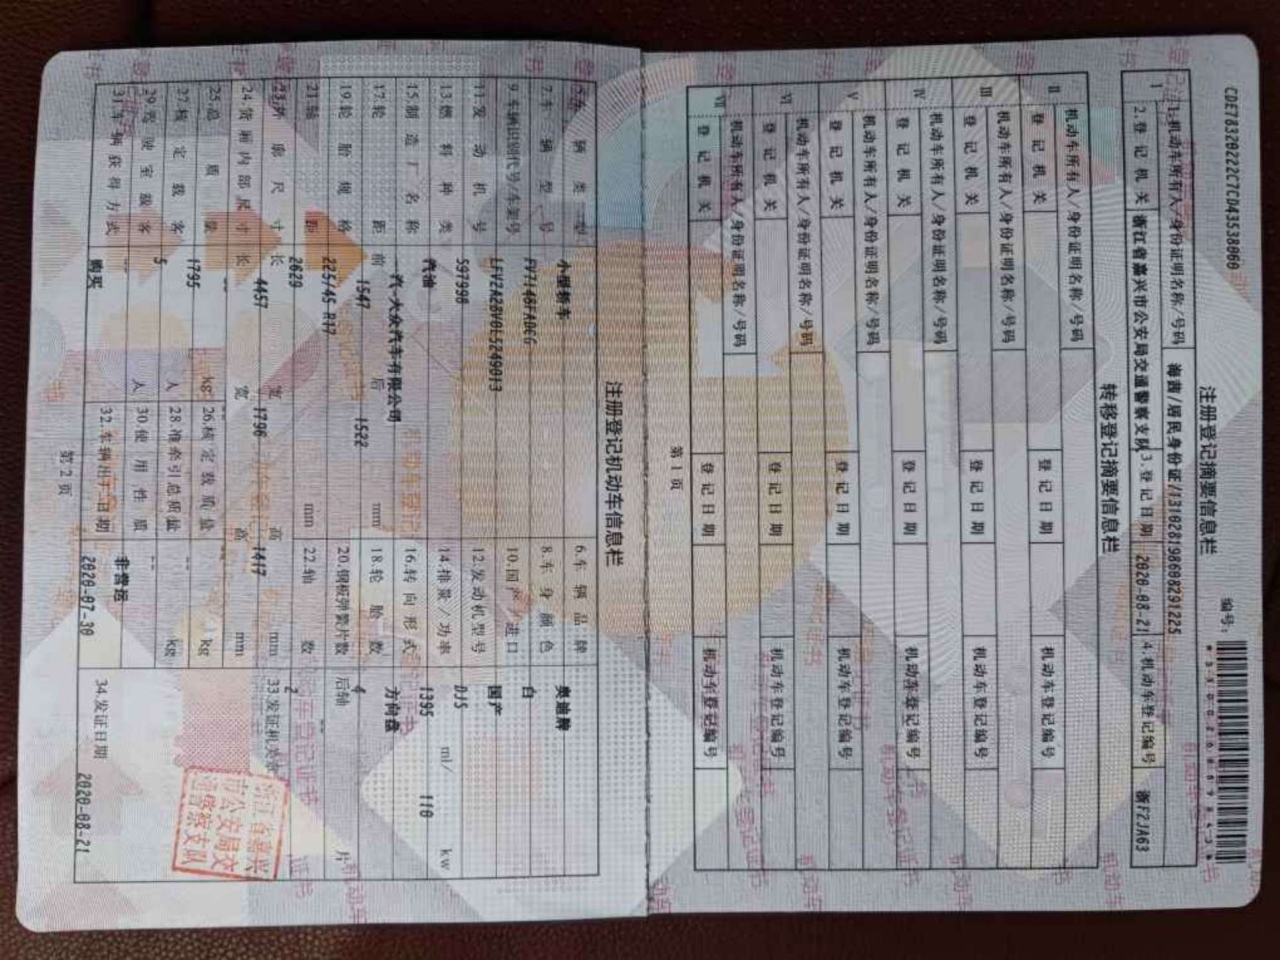 CDE78320222C7CD43538060
编号:
注册登记摘要信息栏
I 1.机动车所有人/身份证明名称/号码 海茜/居民身份证/131028198608291225
2.登记机关 浙江省嘉兴市公安局交通警察支队 3.登记日期 2020-08-21 4.机动车登记编号 浙F2JA63
转移登记摘要信息栏
II 机动车所有人/身份证明名称/号码
登记机关 登记日期 机动车登记编号
III 机动车所有人/身份证明名称/号码
登记机关 登记日期 机动车登记编号
IV 机动车所有人/身份证明名称/号码
登记机关 登记日期 机动车登记编号
V 机动车所有人/身份证明名称/号码
登记机关 登记日期 机动车登记编号
VI 机动车所有人/身份证明名称/号码
登记机关 登记日期 机动车登记编号
VII 机动车所有人/身份证明名称/号码
登记机关 登记日期 机动车登记编号
第1页
注册登记机动车信息栏
5.车辆类型 小型轿车 6.车辆品牌 奥迪牌
7.车辆型号 FV7146FADEG 8.车身颜色 白
9.车辆识别代号/车架号 LFV2A28V0L5249013 10.国产/进口 国产
11.发动机号 S97998 12.发动机型号 DJS
13.燃料种类 汽油 14.排量/功率 1395 ml/ 110 kw
15.制造厂名称 一汽-大众汽车有限公司 16.转向形式 方向盘
17.轮距 前 1547 后 1522 mm 18.轮胎数 4
19.轮胎规格 225/45 R17 20.钢板弹簧片数 后轴 -- 片
21.轴距 2629 mm 22.轴数 2
23.外廓尺寸 长 4457 宽 1796 高 1417 mm 33.发证机关章
24.货厢内部尺寸 长 -- 宽 -- 高 -- mm
25.总质量 1795 kg 26.核定载质量 -- kg
27.核定载客 5 人 28.准牵引总质量 -- kg
29.驾驶室载客 -- 人 30.使用性质 非营运
31.车辆获得方式 购买 32.车辆出厂日期 2020-07-30 34.发证日期 2020-08-21
浙江省嘉兴
市公安局交
通警察支队
第2页